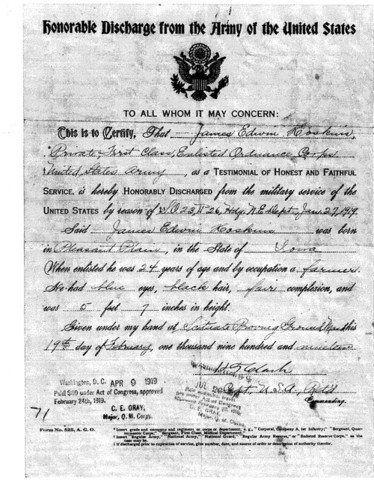 Honorable Discharge from the Army of the United States
TO ALL WHOM IT MAY CONCERN:
This is to Certify, That James Edwin Hoskins,
Private First Class, Enlisted Ordnance Corps
United States Army, as a TESTIMONIAL OF HONEST AND FAITHFUL
SERVICE, is hereby HONORABLY DISCHARGED from the military service of the
UNITED STATES by reason of S.O. 23, Hdq. N.E. Dept. Jan. 27, 1919.
Said James Edwin Hoskins was born
in Pleasant Plain, in the State of Iowa
When enlisted he was 24 years of age and by occupation a farmer.
He had blue eyes, black hair, fair complexion, and
was 5 feet 7 inches in height.
Given under my hand at Scituate Proving Ground, Mass this
19th day of February, one thousand nine hundred and nineteen
Capt. U.S.A.
Commanding.
Washington, D. C. APR 9 1919
Paid $60 under Act of Congress, approved
February 24th, 1919.
C. E. GRAY,
Major, Q. M. Corps.
JUL
71
Form No. 525, A. G. O.